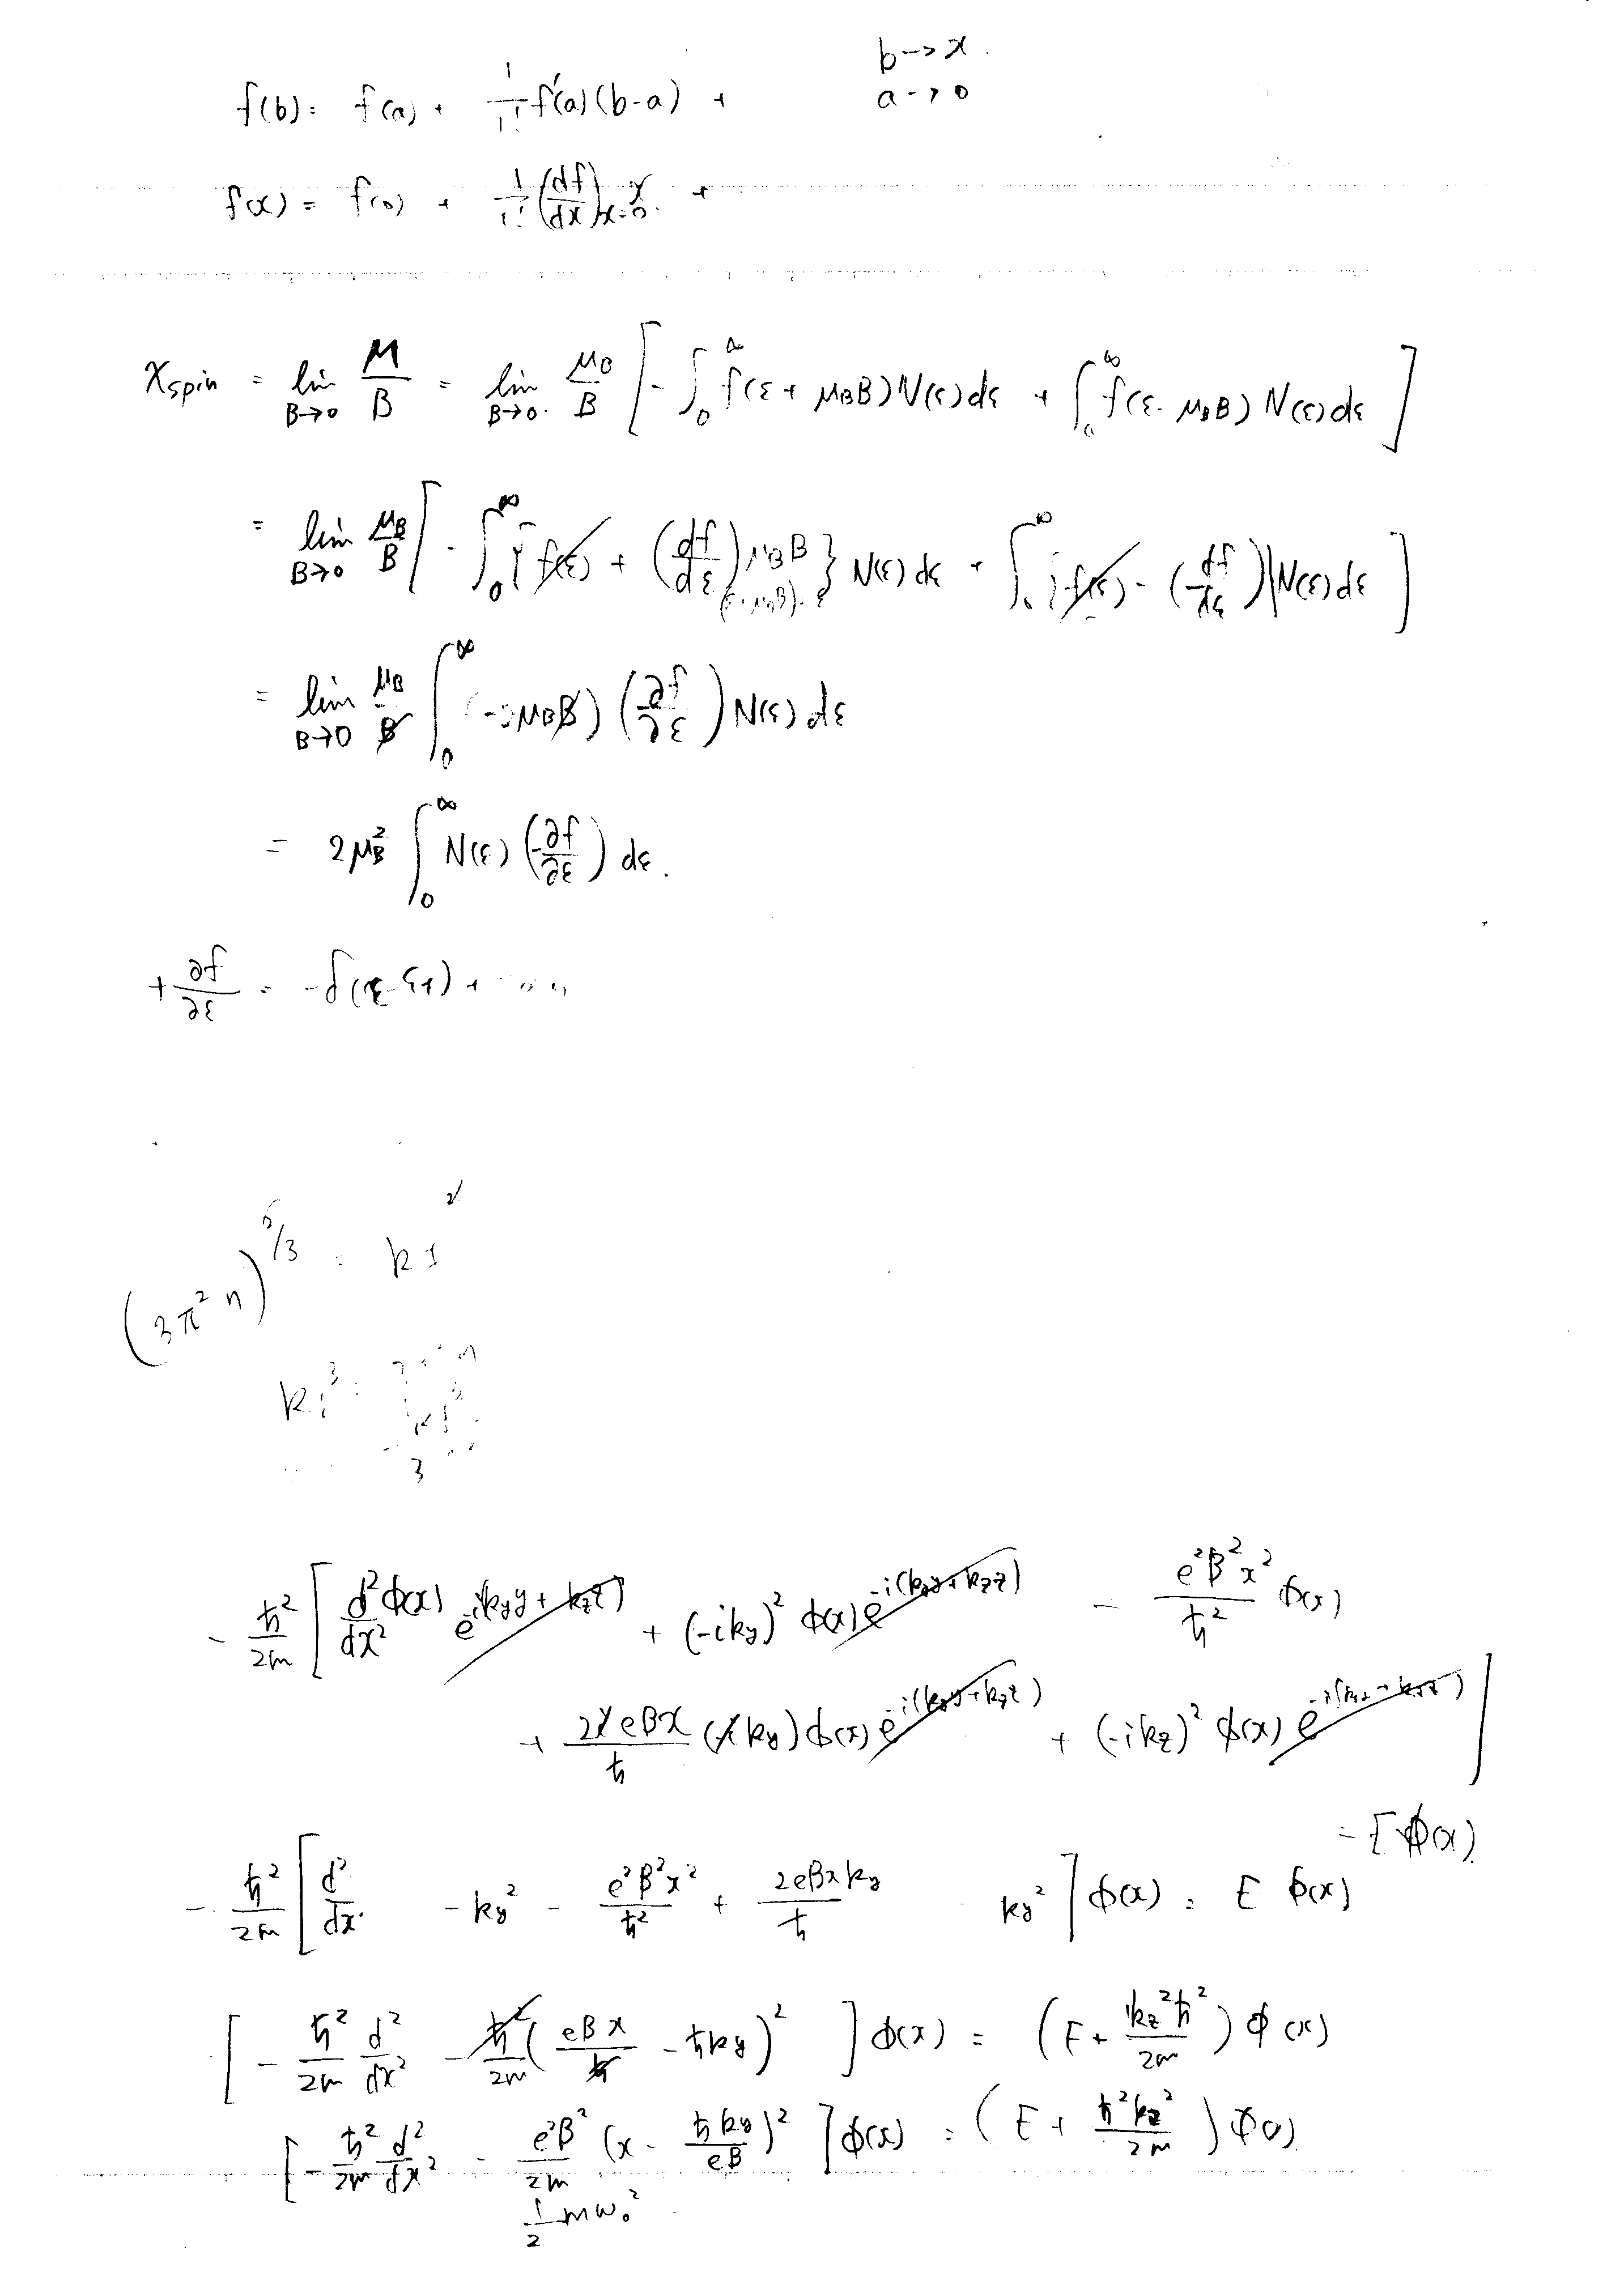 f(b) = f(a) + 1/1! f'(a)(b-a) +
b → x
a → 0
f(x) = f(0) + 1/1! (df/dx)_{x=0} x +
χ_spin = lim_{B→0} M/B = lim_{B→0} μ_B/B [ -∫_0^∞ f(ε + μ_B B) N(ε) dε + ∫_0^∞ f(ε - μ_B B) N(ε) dε ]
= lim_{B→0} μ_B/B [ -∫_0^∞ { f(ε) + (df/dε) μ_B B } N(ε) dε + ∫_0^∞ { f(ε) - (df/dε) } N(ε) dε ]
= lim_{B→0} μ_B/B ∫_0^∞ (-2μ_B B) (∂f/∂ε) N(ε) dε
= 2μ_B^2 ∫_0^∞ N(ε) (-∂f/∂ε) dε.
+ ∂f/∂ε = -δ(ε-ε_f) + ...
(3π^2 n)
3
-ħ^2/2m [ d^2φ(x)/dx^2 e^{-i(k_y y + k_z z)} + (-ik_y)^2 φ(x) e^{-i(k_y y + k_z z)} - e^2B^2x^2/ħ^2 φ(x)
+ 2ieBx/ħ (ik_y) φ(x) e^{-i(k_y y + k_z z)} + (-ik_z)^2 φ(x) e^{-i(k_y y + k_z z)} ]
= E φ(x)
-ħ^2/2m [ d^2/dx^2 - k_y^2 - e^2B^2x^2/ħ^2 + 2eBxk_y/ħ - k_y^2 ] φ(x) = E φ(x)
[ -ħ^2/2m d^2/dx^2 - ħ^2/2m (eBx/ħ - ħk_y)^2 ] φ(x) = (E + k_z^2ħ^2/2m) φ(x)
[ -ħ^2/2m d^2/dx^2 - e^2B^2/2m (x - ħk_y/eB)^2 ] φ(x) = (E + ħ^2k_z^2/2m) φ(x)
1/2 mω_0^2